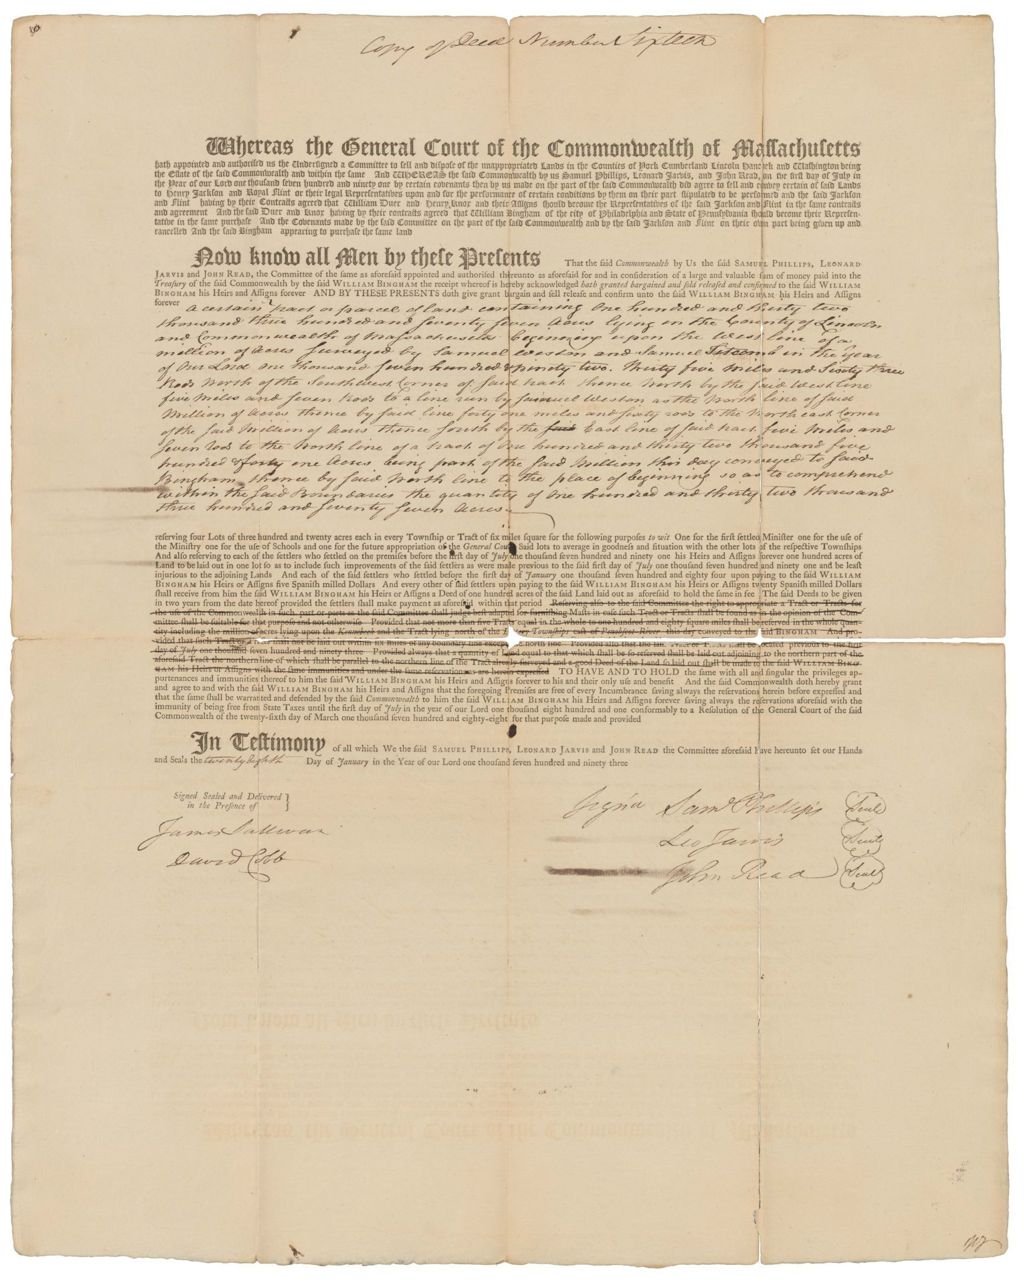 Copy of Deed Number Sixteen
Whereas the General Court of the Commonwealth of Maſſachuſetts
hath appointed and authoriſed us the Underſigned a Committee to ſell and diſpoſe of the unappropriated Lands in the Counties of York Cumberland Lincoln Hancock and Waſhington being
the Eſtate of the ſaid Commonwealth and within the ſame And WHEREAS the ſaid Commonwealth by us Samuel Phillips, Leonard Jarvis, and John Read, on the firſt day of July in
the Year of our Lord one thouſand ſeven hundred and ninety one by certain covenants then by us made on the part of the ſaid Commonwealth did agree to ſell and convey certain of ſaid Lands
to Henry Jackſon and Royal Flint or their legal Repreſentatives upon and for the performance of certain conditions by them on their part ſtipulated to be performed and the ſaid Jackſon
and Flint having by their Contracts agreed that William Duer and Henry Knox and their Aſſigns ſhould become the Repreſentatives of the ſaid Jackſon and Flint in the ſame contracts
and agreement And the ſaid Duer and Knox having by their contracts agreed that William Bingham of the city of Philadelphia and State of Pennſylvania ſhould become their Repreſen-
tative in the ſame purchaſe And the Covenants made by the ſaid Committee on the part of the ſaid Commonwealth and by the ſaid Jackſon and Flint on their own part being given up and
cancelled And the ſaid Bingham appearing to purchaſe the ſame land
Now know all Men by theſe Preſents That the ſaid Commonwealth by Us the ſaid SAMUEL PHILLIPS, LEONARD
JARVIS and JOHN READ, the Committee of the ſame as aforeſaid appointed and authoriſed thereunto as aforeſaid for and in conſideration of a large and valuable ſum of money paid into the
Treaſury of the ſaid Commonwealth by the ſaid WILLIAM BINGHAM the receipt whereof is hereby acknowledged hath granted bargained and ſold releaſed and confirmed to the ſaid WILLIAM
BINGHAM his Heirs and Aſſigns forever AND BY THESE PRESENTS doth give grant bargain and ſell releaſe and confirm unto the ſaid WILLIAM BINGHAM his Heirs and Aſſigns
forever
A certain part or parcel of land containing One hundred and thirty two
thousand three hundred and seventy seven Acres lying in the County of Lincoln
and Commonwealth of Massachusetts beginning upon the West line of a
million of Acres Surveyed by Samuel Weston and Samuel Titcomb in the year
of Our Lord one thousand seven hundred & ninety two. Thirty five Miles and Sixty three
Rods North of the Southwest Corner of said tract thence North by the said West line
five Miles and seven Rods to a line run by Samuel Weston as the North line of said
Million of Acres thence by said line forty one miles and sixty rods to the Northeast Corner
of the said Million of Acres thence South by the said East line of said tract five Miles and
Seven Rods to the North line of a tract of One hundred and thirty two thousand five
hundred & forty one Acres being part of the said Million this day conveyed to said
Bingham thence by said North line to the place of beginning so as to comprehend
within the said Boundaries the quantity of One hundred and thirty two thousand
three hundred and Seventy Seven Acres.
reſerving four Lots of three hundred and twenty acres each in every Townſhip or Tract of ſix miles ſquare for the following purpoſes to wit One for the firſt ſettled Miniſter one for the uſe of
the Miniſtry one for the uſe of Schools and one for the future appropriation of the General Court Said lots to average in goodneſs and ſituation with the other lots of the reſpective Townſhips
And alſo reſerving to each of the ſettlers who ſettled on the premiſes before the firſt day of July one thouſand ſeven hundred and ninety one his Heirs and Aſſigns forever one hundred acres of
Land to be laid out in one lot ſo as to include ſuch improvements of the ſaid ſettlers as were made previous to the ſaid firſt of July one thouſand ſeven hundred and ninety one and be leaſt
injurious to the adjoining Lands And each of the ſaid ſettlers who ſettled before the firſt day of January one thouſand ſeven hundred and eighty four upon paying to the ſaid WILLIAM
BINGHAM his Heirs or Aſſigns five Spaniſh milled Dollars And every other of ſaid ſettlers upon paying to the ſaid WILLIAM BINGHAM his Heirs or Aſſigns twenty Spaniſh milled Dollars
ſhall receive from him the ſaid WILLIAM BINGHAM his Heirs or Aſſigns a Deed of one hundred acres of the ſaid Land laid out as aforeſaid to hold the ſame in fee The ſaid Deeds to be given
in two years from the date hereof provided the ſettlers ſhall make payment as aforeſaid within that period Reſerving alſo to the ſaid Committee the right to appropriate a Tract or Tracts for
the uſe of the Commonwealth in ſuch part or parts as the ſaid Committee ſhall judge beſt adapted for furniſhing Maſts in caſe ſuch Tract or Tracts ſhall be found as in the opinion of the Com-
mittee ſhall be ſuitable for that purpoſe and not otherwiſe Provided that not more than five Tracts equal in the whole to one hundred and eighty ſquare miles ſhall be reſerved in the whole quan-
tity including the million of acres lying upon the Kennebeck and the Tract lying north of the Lottery Townſhips eaſt of Penobſcot River this day conveyed to the ſaid BINGHAM And pro-
vided that ſuch Tract or Tracts ſhall not be laid out within ſix miles of any boundary line except the north line Provided alſo that the ſaid Tract or Tracts ſhall be located previous to the firſt
day of July one thouſand ſeven hundred and ninety three Provided always that a quantity of Land equal to that which ſhall be ſo reſerved ſhall be laid out adjoining to the northern part of the
aforeſaid Tract the northern line of which ſhall be parallel to the northern line of the Tract already ſurveyed and a good Deed of the Land ſo laid out ſhall be made to the ſaid WILLIAM BING-
HAM his Heirs or Aſſigns with the ſame immunities and under the ſame reſervations as are herein expreſſed TO HAVE AND TO HOLD the ſame with all and ſingular the privileges ap-
purtenances and immunities thereof to him the ſaid WILLIAM BINGHAM his Heirs and Aſſigns forever to his and their only uſe and benefit And the ſaid Commonwealth doth hereby grant
and agree to and with the ſaid WILLIAM BINGHAM his Heirs and Aſſigns that the foregoing Premiſes are free of every Incumbrance ſaving always the reſervations herein before expreſſed and
that the ſame ſhall be warranted and defended by the ſaid Commonwealth to him the ſaid WILLIAM BINGHAM his Heirs and Aſſigns forever ſaving always the reſervations aforeſaid with the
immunity of being free from State Taxes until the firſt day of July in the year of our Lord one thouſand eight hundred and one conformably to a Reſolution of the General Court of the ſaid
Commonwealth of the twenty-ſixth day of March one thouſand ſeven hundred and eighty-eight for that purpoſe made and provided
In Teſtimony of all which We the ſaid SAMUEL PHILLIPS, LEONARD JARVIS and JOHN READ the Committee aforeſaid have hereunto ſet our Hands
and Seals the twenty eighth Day of January in the Year of our Lord one thouſand ſeven hundred and ninety three
Signed Sealed and Delivered
in the Preſence of
James Sullivan
David Cobb
Sign'd Sam. Phillips Seal
Leo Jarvis Seal
John Read Seal